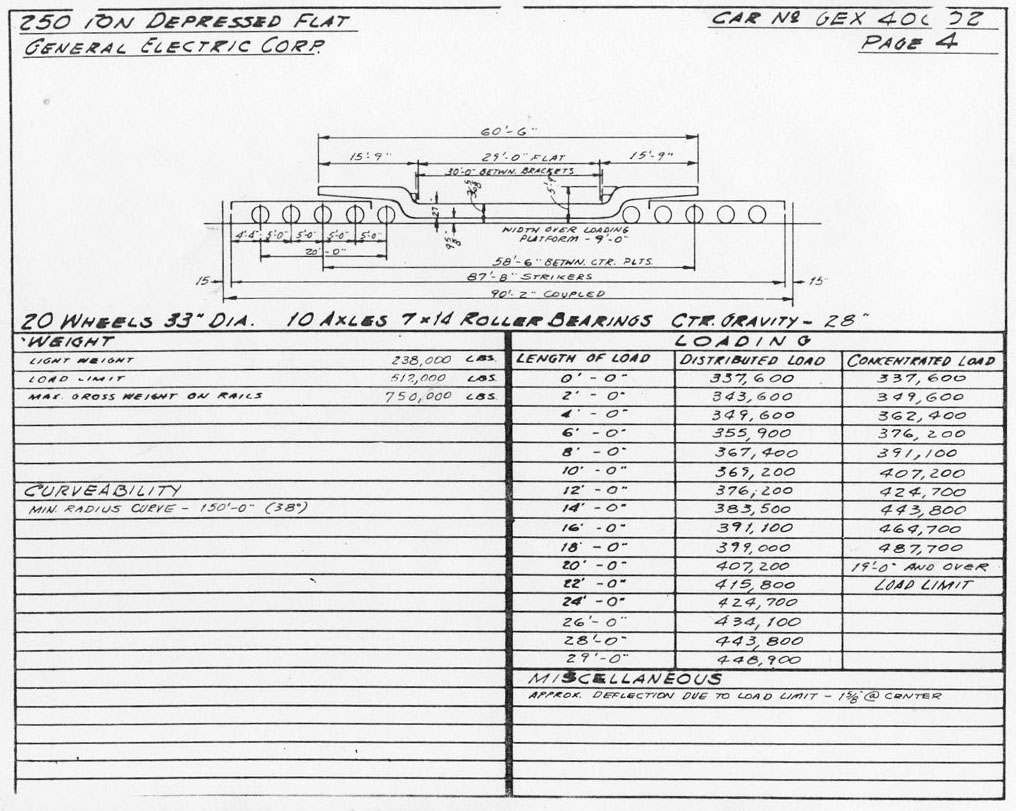 250 TON DEPRESSED FLAT
CAR Nº GEX
GENERAL ELECTRIC CORP.
PAGE 4
60'-6"
15'-9" 29'-0" FLAT 15'-9"
30'-0" BETWN. BRACKETS
WIDTH OVER LOADING
PLATFORM - 9'-0"
4'-4" 5'-0" 5'-0" 5'-0" 5'-0"
20'-0"
58'-6" BETWN. CTR. PLTS.
15" 87'-8" STRIKERS 15"
90'-2" COUPLED
20 WHEELS 33" DIA. 10 AXLES 7×14 ROLLER BEARINGS CTR. GRAVITY - 28"
WEIGHT
LIGHT WEIGHT 238,000 LBS.
LOAD LIMIT 512,000 LBS.
MAX. GROSS WEIGHT ON RAILS 750,000 LBS.
CURVEABILITY
MIN. RADIUS CURVE - 150'-0" (38°)
LOADING
LENGTH OF LOAD DISTRIBUTED LOAD CONCENTRATED LOAD
0'-0" 337,600 337,600
2'-0" 343,600 349,600
4'-0" 349,600 362,400
6'-0" 355,900 376,200
8'-0" 367,400 391,100
10'-0" 369,200 407,200
12'-0" 376,200 424,700
14'-0" 383,500 443,800
16'-0" 391,100 464,700
18'-0" 399,000 487,700
20'-0" 407,200 19'-0" AND OVER
22'-0" 415,800 LOAD LIMIT
24'-0" 424,700
26'-0" 434,100
28'-0" 443,800
29'-0" 448,900
MISCELLANEOUS
APPROX. DEFLECTION DUE TO LOAD LIMIT - 1 5/8" @ CENTER